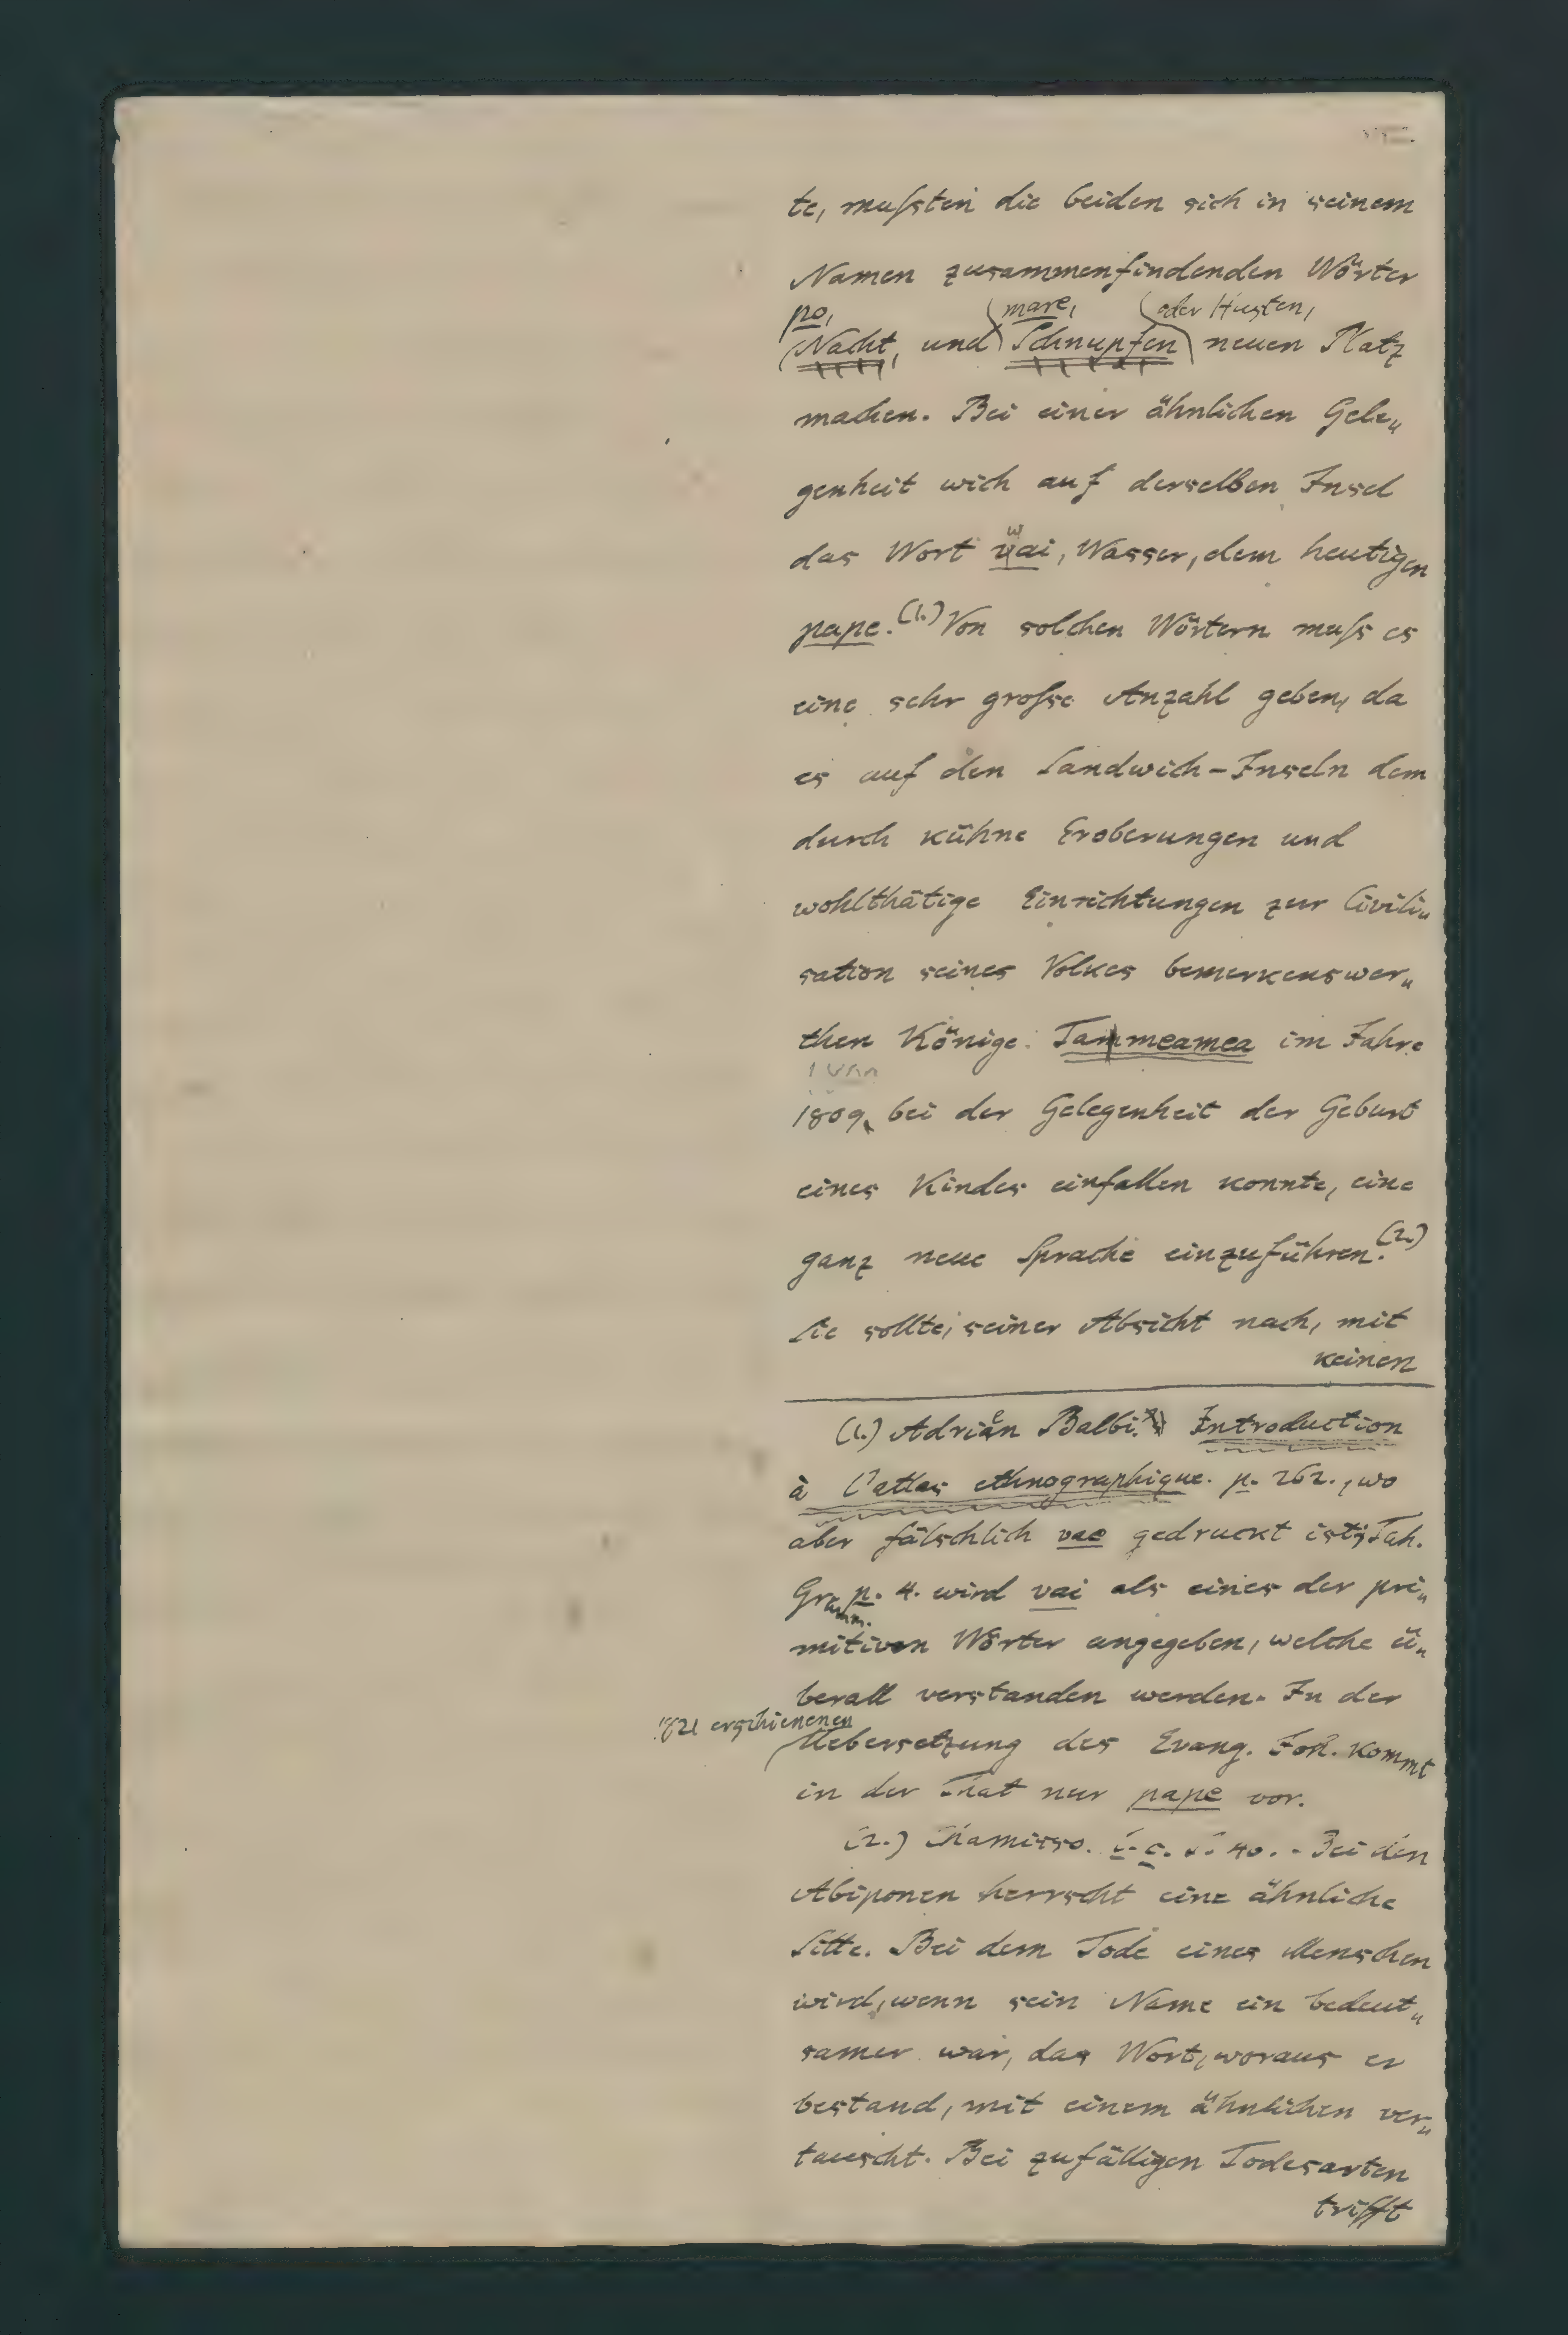 te, mußten die beiden sich in seinem
Namen zusammenfindenden Wörter
po, mare, oder Husten,
Nacht, und Schnupfen neuen Platz
machen. Bei einer ähnlichen Gele„
genheit wich auf derselben Insel
w
das Wort vai, Wasser, dem heutigen
pape.(1.) Von solchen Wörtern muß es
eine sehr große Anzahl geben, da
es auf den Sandwich-Inseln dem
durch kühne Eroberungen und
wohlthätige Einrichtungen zur Civili„
sation seines Volkes bemerkenswer„
then Könige Tammeamea im Jahre
1809, bei der Gelegenheit der Geburt
eines Kindes einfallen konnte, eine
ganz neue Sprache einzuführen.(2.)
Sie sollte, seiner Absicht nach, mit
keinen
(1.) Adrien Balbi. Introduction
à l'atlas ethnographique. p. 262., wo
aber fälschlich vae gedruckt ist; Tah.
Gramm. p. 4. wird vai als eines der pri„
mitiven Wörter angegeben, welche ü„
berall verstanden werden. In der
1821 erschienenen
Uebersetzung des Evang. Joh. kommt
in der That nur pape vor.
(2.) Chamisso. l. c. S. 40. - Bei den
Abiponen herrscht eine ähnliche
Sitte. Bei dem Tode eines Menschen
wird, wenn sein Name ein bedeut„
samer war, das Wort, woraus er
bestand, mit einem ähnlichen ver„
tauscht. Bei zufälligen Todesarten
trifft